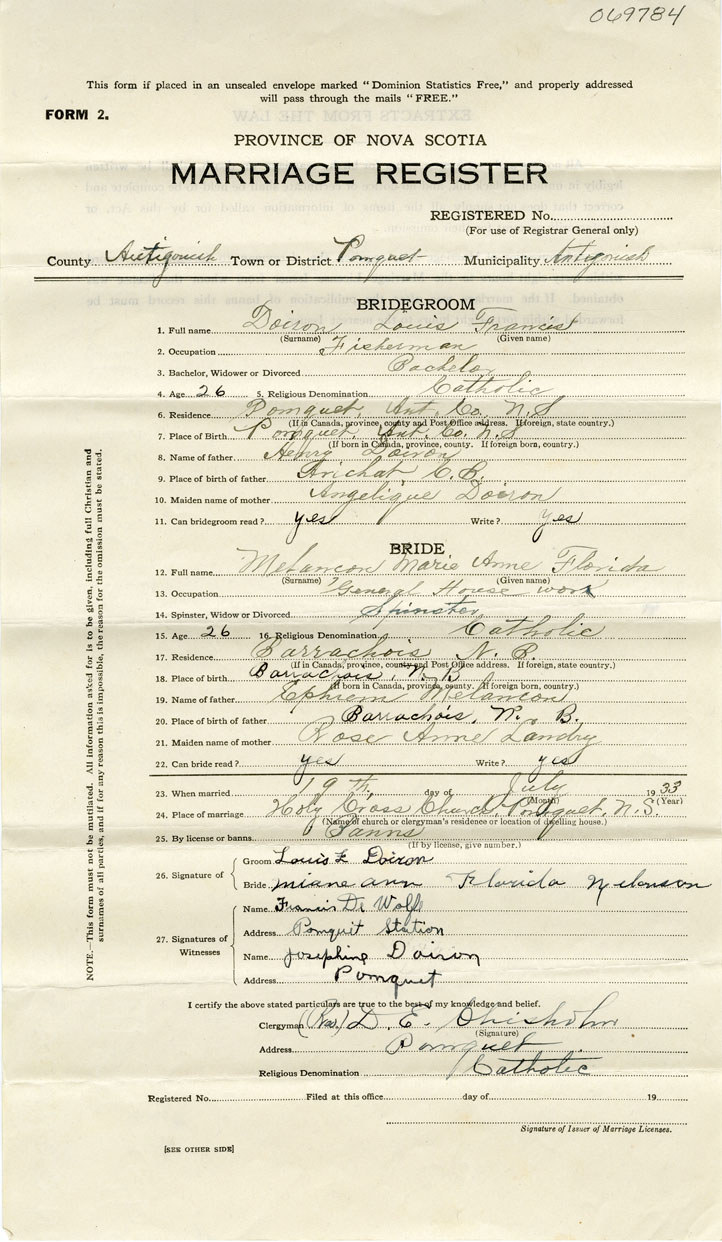 069784
This form if placed in an unsealed envelope marked "Dominion Statistics Free," and properly addressed
will pass through the mails "FREE."
FORM 2.
PROVINCE OF NOVA SCOTIA
MARRIAGE REGISTER
REGISTERED No.
(For use of Registrar General only)
County Antigonish Town or District Pomquet Municipality Antigonish
BRIDEGROOM
1. Full name Doiron Louis Francis
(Surname) (Given name)
2. Occupation Fisherman
3. Bachelor, Widower or Divorced Bachelor
4. Age 26 5. Religious Denomination Catholic
6. Residence Pomquet, Ant. Co. N.S
(If in Canada, province, county and Post Office address. If foreign, state country.)
7. Place of Birth Pomquet, Ant. Co. N.S
(If born in Canada, province, county. If foreign born, country.)
8. Name of father Henry Doiron
9. Place of birth of father Arichat C.B.
10. Maiden name of mother Angelique Doiron
11. Can bridegroom read? yes Write? yes
BRIDE
12. Full name Melancon Marie Anne Florida
(Surname) (Given name)
13. Occupation General House work
14. Spinster, Widow or Divorced Spinster
15. Age 26 16. Religious Denomination Catholic
17. Residence Barrachois N. B.
(If in Canada, province, county and Post Office address. If foreign, state country.)
18. Place of birth Barrachois, N. B
(If born in Canada, province, county. If foreign born, country.)
19. Name of father Ephrem Melancon
20. Place of birth of father Barrachois, N. B.
21. Maiden name of mother Rose Anne Landry
22. Can bride read? yes Write? yes
23. When married 19th day of July 1933
(Month) (Year)
24. Place of marriage Holy Cross Church, Pomquet, N.S.
(Name of church or clergyman's residence or location of dwelling house.)
25. By license or banns Banns
(If by license, give number.)
26. Signature of
Groom Louis F Doiron
Bride ann Florida
27. Signatures of Witnesses
Name Francis De Wolfe
Address Pomquit Station
Name Josephine Doiron
Address Pomquet
I certify the above stated particulars are true to the best of my knowledge and belief.
Clergyman (Rev.) D. E. Chisholm
(Signature)
Address Pomquet
Religious Denomination Catholic
Registered No. Filed at this office day of 19
Signature of Issuer of Marriage Licenses.
[SEE OTHER SIDE]
NOTE.—This form must not be mutilated. All information asked for is to be given, including full Christian and
surnames of all parties, and if for any reason this is impossible, the reason for the omission must be stated.